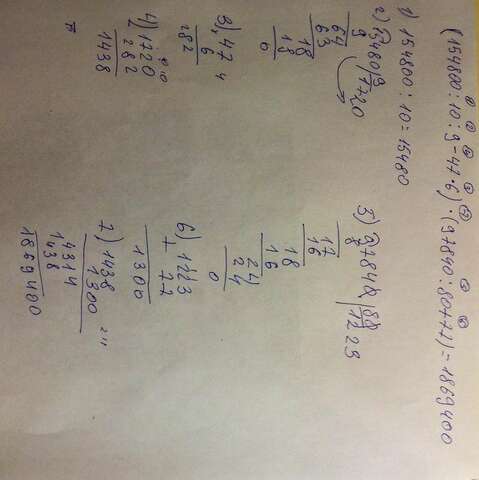 (154800:10:9-47·6)·(97840:80+77)=1869400
1) 154800:10=15480
2) 15480|9
9 1720
64
63
18
18
0
3) 47
6
282
4) 1720
282
1438
5) 97840|80
8 1223
17
16
18
16
24
24
0
6) 1223
+ 77
1300
7) 1438
1300
4314
1438
1869400